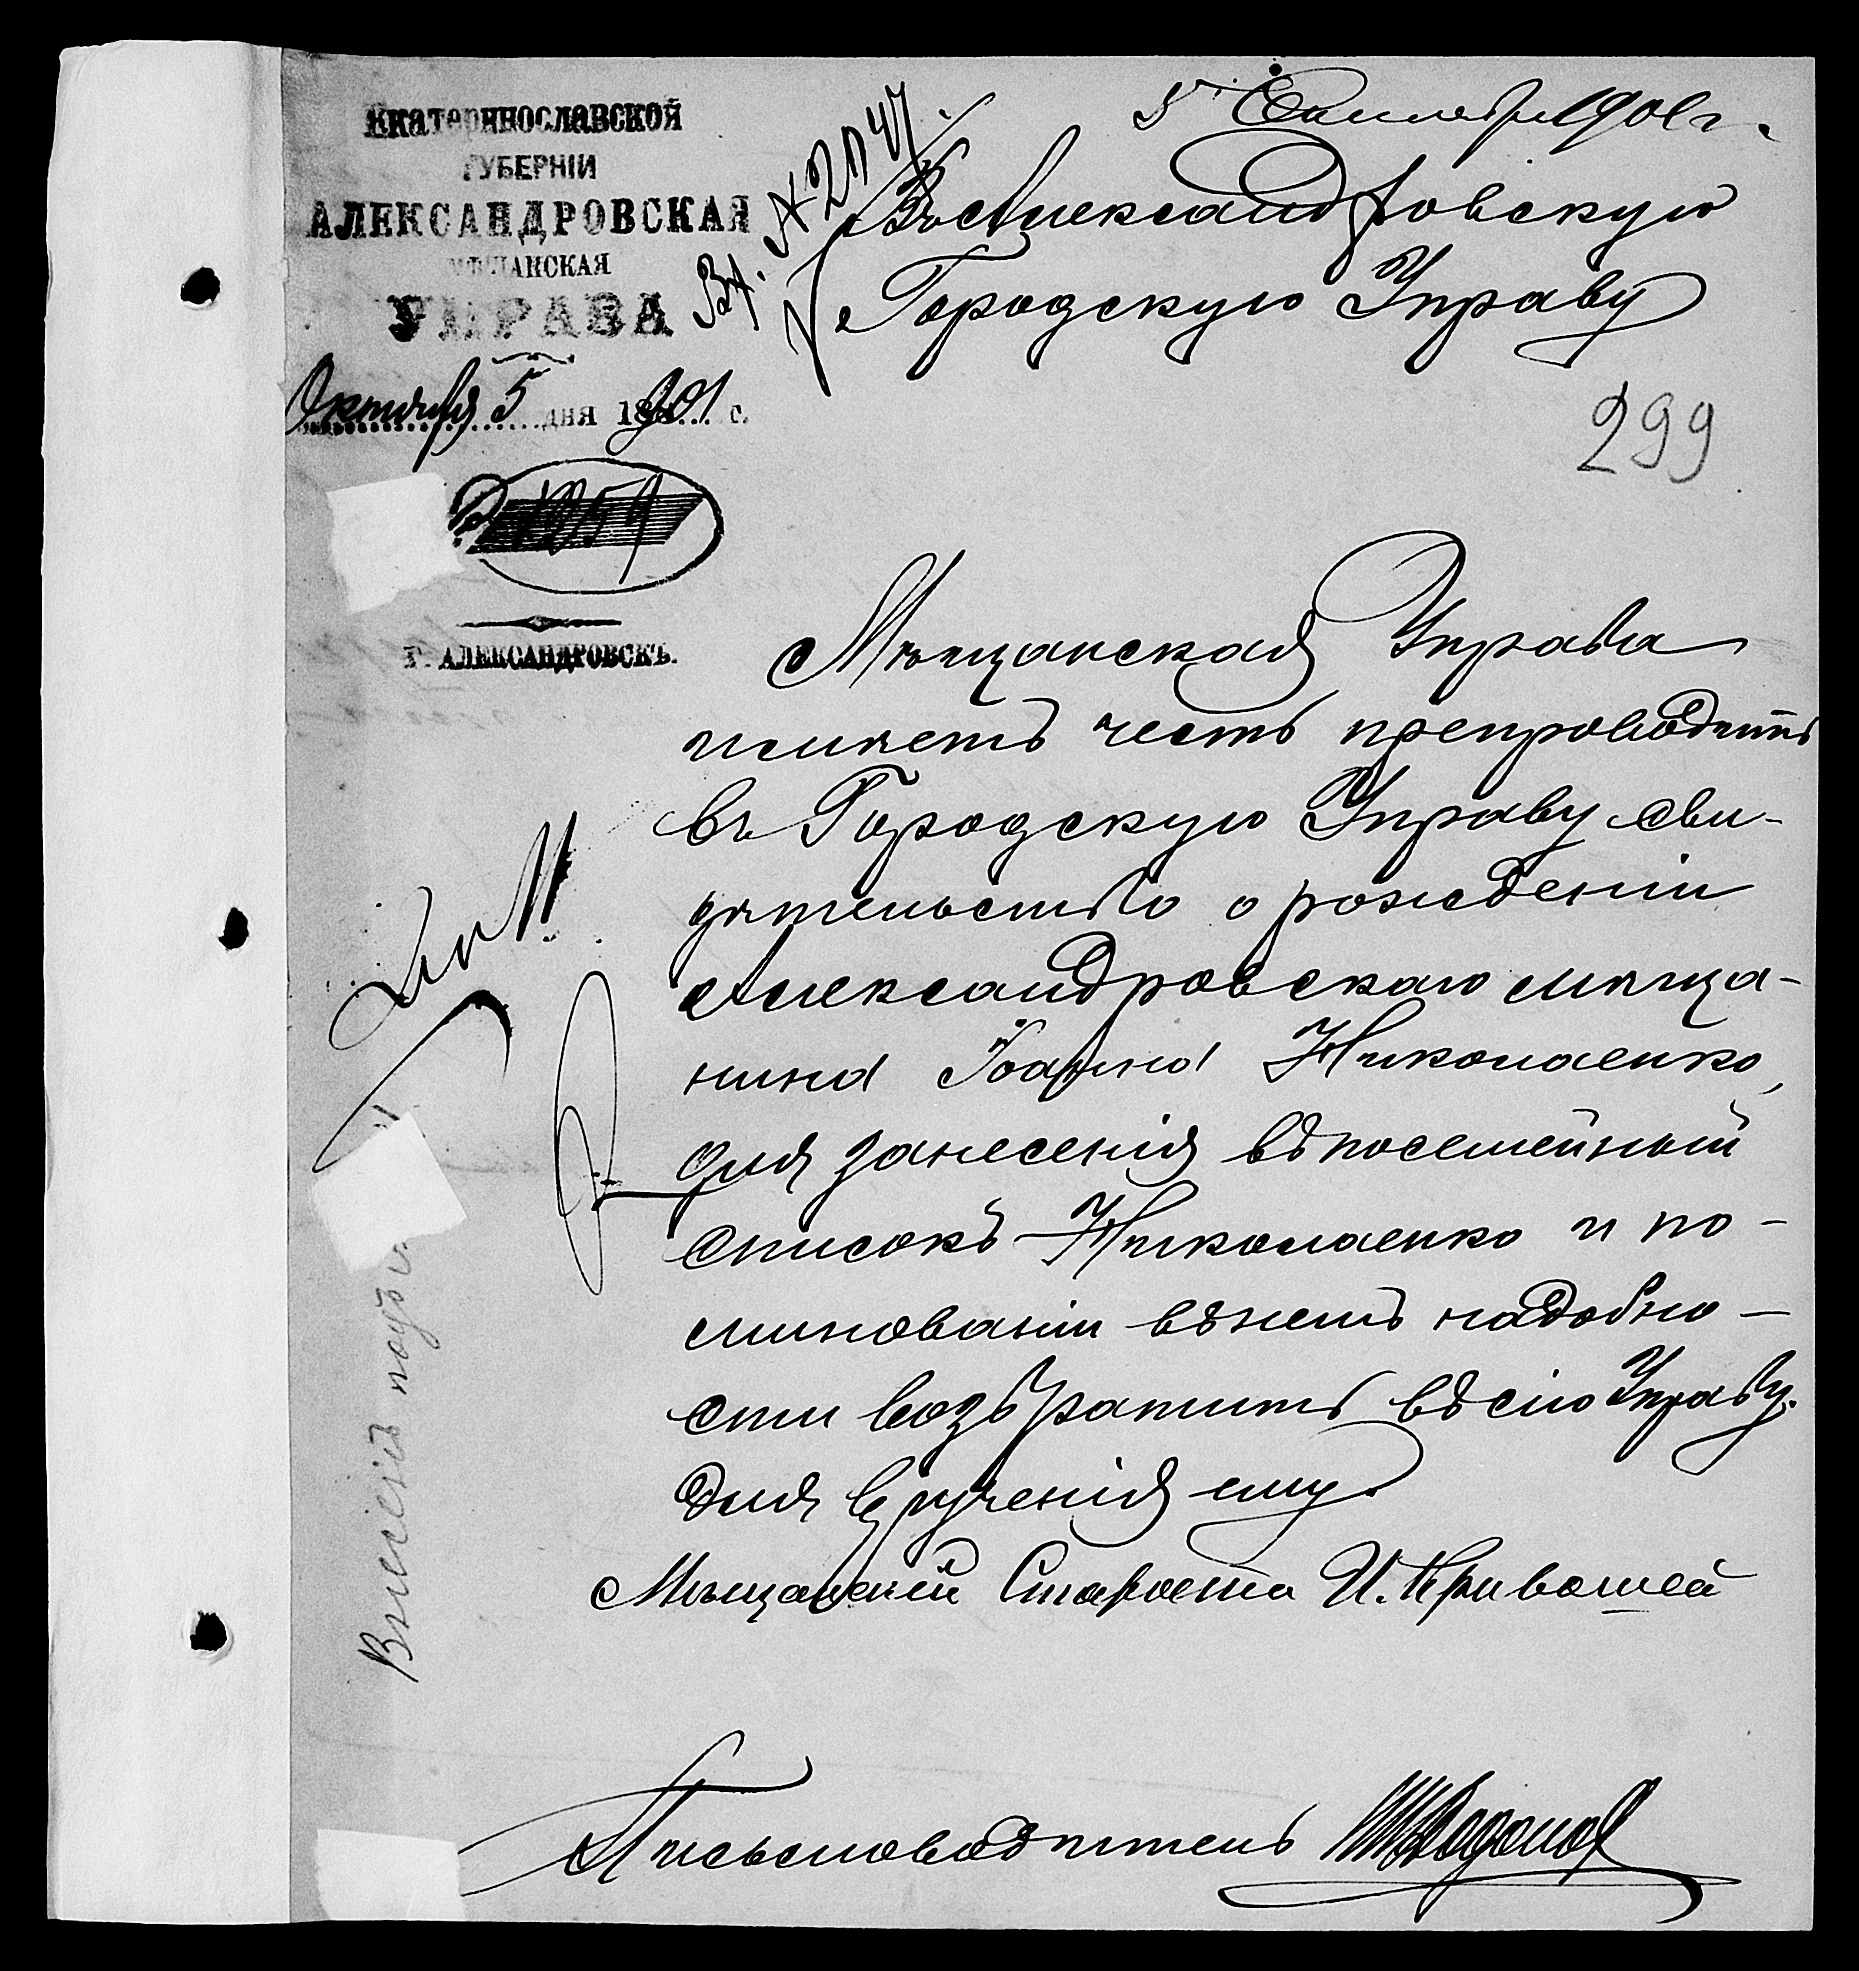 Екатеринославской
ГУБЕРНІИ
АЛЕКСАНДРОВСКАЯ
МѢЩАНСКАЯ
УПРАВА
Октября 5 дня 1901 г.
№ 1257
Г. АЛЕКСАНДРОВСКЪ.
Вх. №
5 Октября 1901 г.
Въ Александровскую
Городскую Управу
299
Мѣщанская Управа
имѣетъ честь препроводить
въ Городскую Управу сви-
дѣтельство о рожденіи
Александровскаго мѣща-
нина Іоанна Николаенко,
для занесенія въ посемейный
списокъ Николаенко и по-
минованіи въ немъ надобно-
сти возвратить въ сію Управу
для врученія ему.
Мѣщанскій Староста И. Кривошей
Письмоводитель
Внесенъ подъ